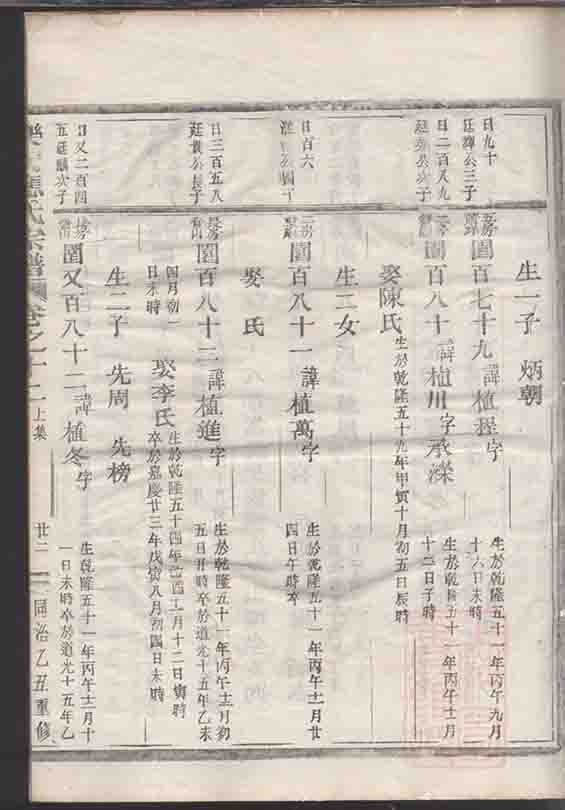 生一子 炳朝
日九十
廷輝公三子
圍百七十九諱植握字
生於乾隆五十一年丙午九月
十六日未時
日二百八九
公次子
圍百八十諱植川字承濼
生於乾隆五十一年丙午十二月
十二日子時
娶陳氏生於乾隆五十九年甲寅十月初五日辰時
生二女
日百六
圍百八十一諱植萬字
生於乾隆五十一年丙午十二月廿
四日午時卒
娶 氏
日三百五八
廷 公長子
圍百八十二諱植進字
生於乾隆五十一年丙午十二月初
五日丑時卒於道光十五年乙未
四月初一
日未時
娶李氏
生於乾隆五十四年己酉十一月十二日寅時
卒於嘉慶廿三年戊寅八月初四日未時
生二子 先周 先榜
日又二百四
五廷 次子
圍又百八十二諱植冬字
生乾隆五十一年丙午十二月十
一日未時卒於道光十五年乙
氏宗譜 卷之十二 上集 廿二 同治乙丑重修